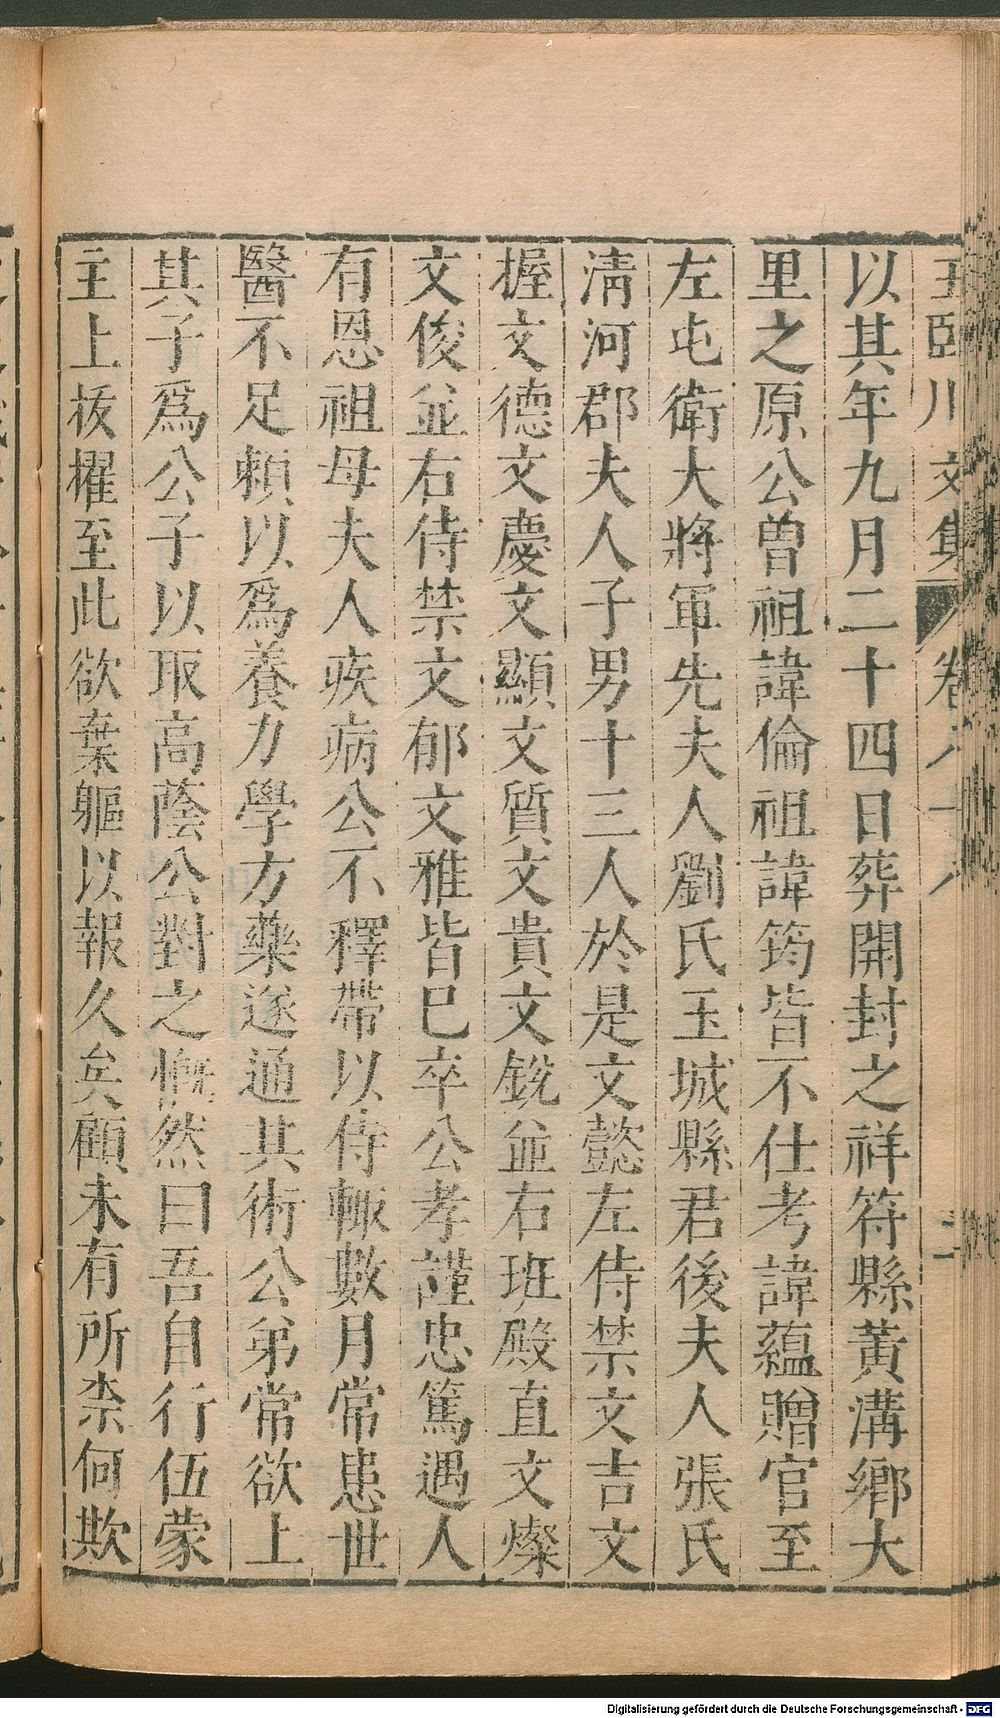 王臨川文集 卷八十八
以其年九月二十四日葬開封之祥符縣黃溝鄉大
里之原公曾祖諱倫祖諱筠皆不仕考諱蘊贈官至
左屯衛大將軍先夫人劉氏玉城縣君後夫人張氏
淸河郡夫人子男十三人於是文懿左侍禁文吉文
握文德文慶文顯文質文貴文銳並右班殿直文燦
文俊並右侍禁文郁文雅皆巳卒公孝謹忠篤遇人
有恩祖母夫人疾病公不釋帶以侍輙數月常患世
醫不足賴以爲養力學方藥遂通其術公弟常欲上
其子爲公子以取高蔭公對之慨然曰吾自行伍蒙
主上拔擢至此欲棄軀以報久矣顧未有所柰何欺
Digitalisierung gefördert durch die Deutsche Forschungsgemeinschaft - DFG